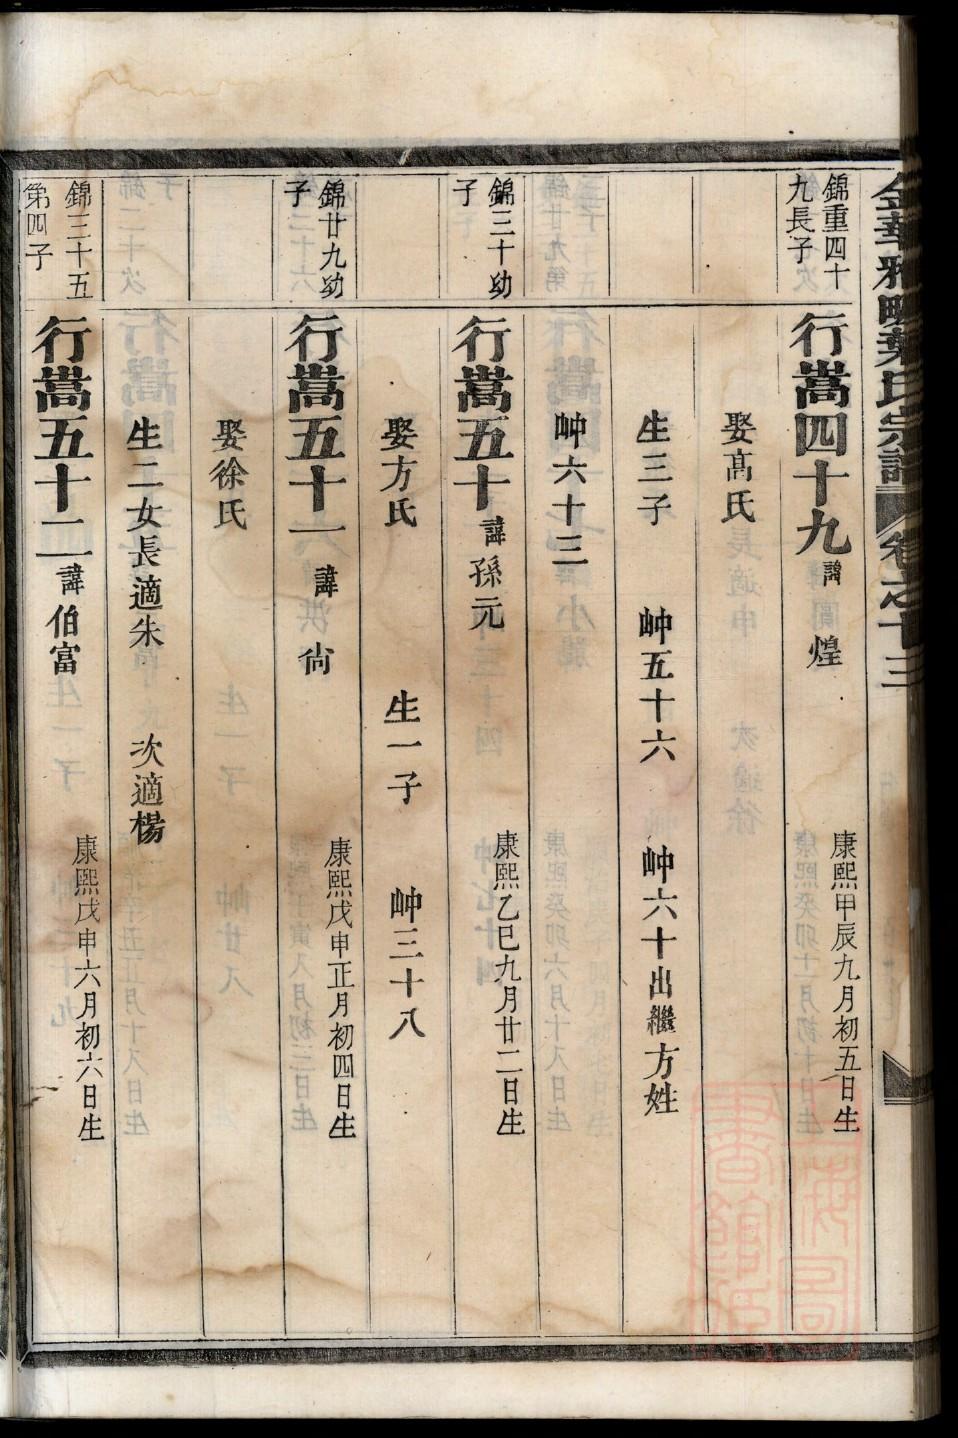 金華雅畈葉氏宗譜 卷之十三
錦重四十
九長子
行嵩四十九 諱 煌
康熙甲辰九月初五日生
娶高氏
生三子 岫五十六 岫六十出繼方姓
岫六十三
錦三十幼
子
行嵩五十 諱 孫元
康熙乙巳九月廿二日生
娶方氏 生一子 岫三十八
錦廿九幼
子
行嵩五十一 諱 尙
康熙戊申正月初四日生
娶徐氏
生二女長適朱 次適楊
錦三十五
第四子
行嵩五十二 諱 伯富
康熙戊申六月初六日生